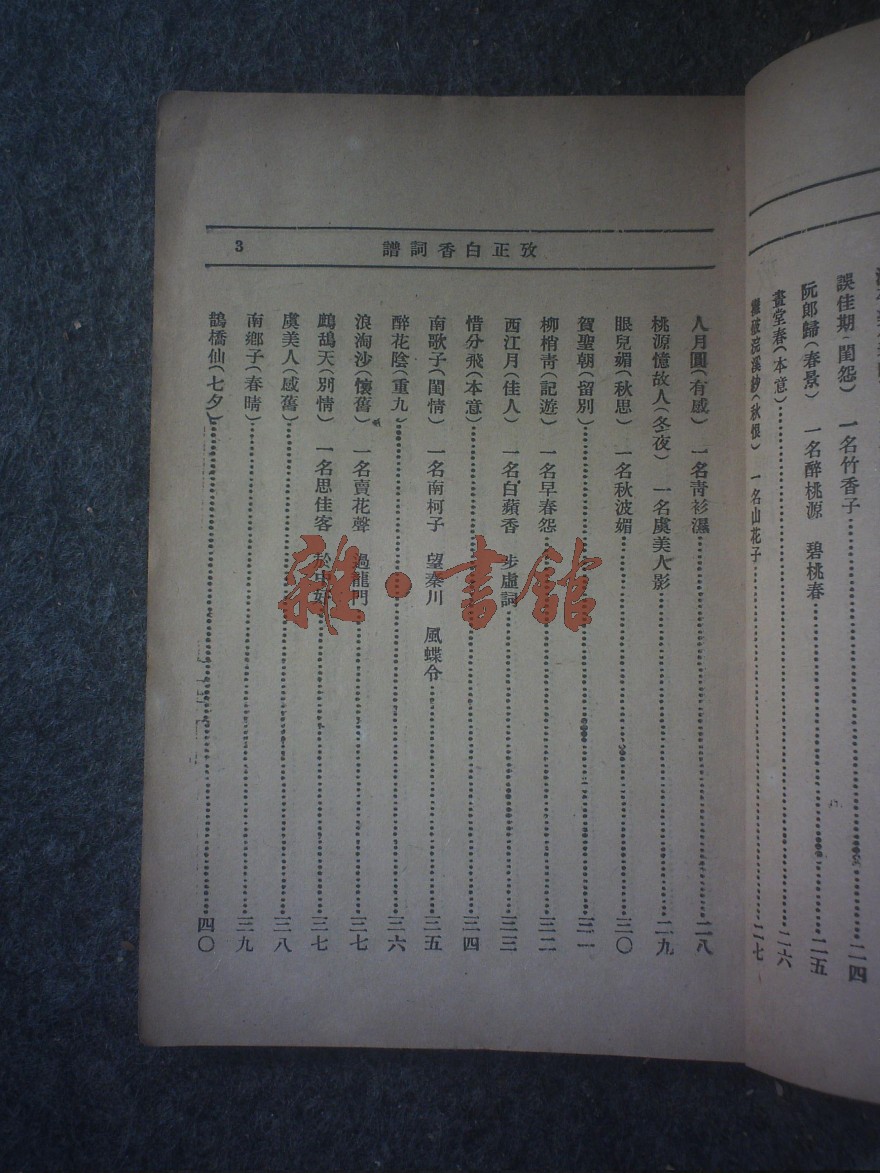 誤佳期(閨怨) 一名竹香子……二四
阮郞歸(春景) 一名醉桃源 碧桃春……二五
畫堂春(本意)……二六
攤破浣溪紗(秋恨) 一名山花子……二七
攷正白香詞譜 3
人月圓(有感) 一名靑衫濕……二八
桃源憶故人(冬夜) 一名虞美人影……二九
眼兒媚(秋思) 一名秋波媚……三〇
賀聖朝(留別)……三一
柳梢靑(記遊) 一名早春怨……三二
西江月(佳人) 一名白蘋香 步虛詞……三三
惜分飛(本意)……三四
南歌子(閨情) 一名南柯子 望秦川 風蝶令……三五
醉花陰(重九)……三六
浪淘沙(懷舊) 一名賣花聲 過龍門……三七
鷓鴣天(別情) 一名思佳客 於中好……三七
虞美人(感舊)……三八
南鄕子(春晴)……三九
鵲橋仙(七夕)……四〇
雜·書館